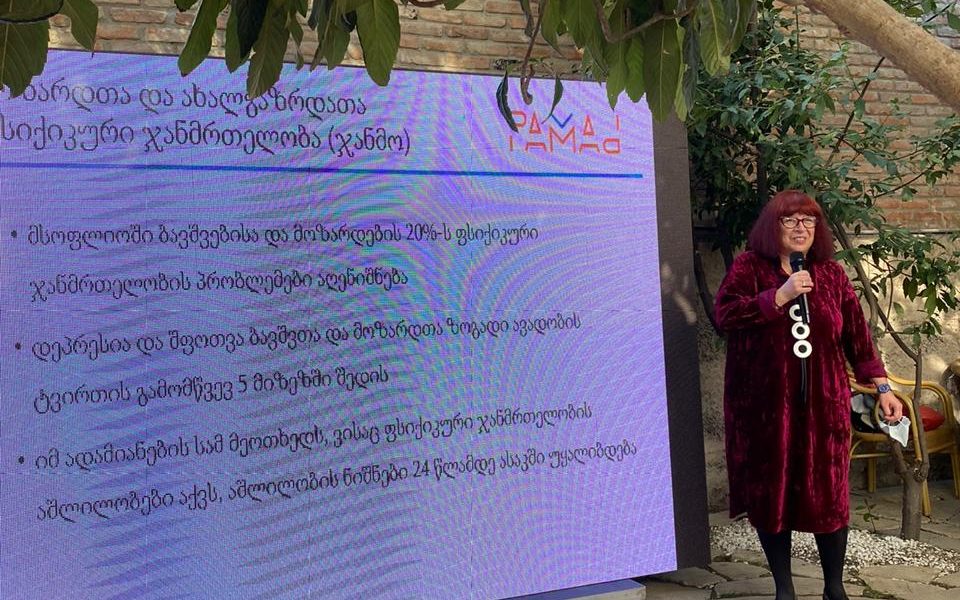 ზარდთა და ახალგაზრდათა
სიქიკური ჯანმრთელობა (ჯანმო)
• მსოფლიოში ბავშვებისა და მოზარდების 20%-ს ფსიქიკური
ჯანმრთელობის პრობლემები აღენიშნება
• დეპრესია და შფოთვა ბავშვთა და მოზარდთა ზოგადი ავადობის
ტვირთის გამომწვევ 5 მიზეზში შედის
• იმ ადამიანების სამ მეოთხედს, ვისაც ფსიქიკური ჯანმრთელობის
აშლილობები აქვს, აშლილობის ნიშნები 24 წლამდე ასაკში უყალიბდება